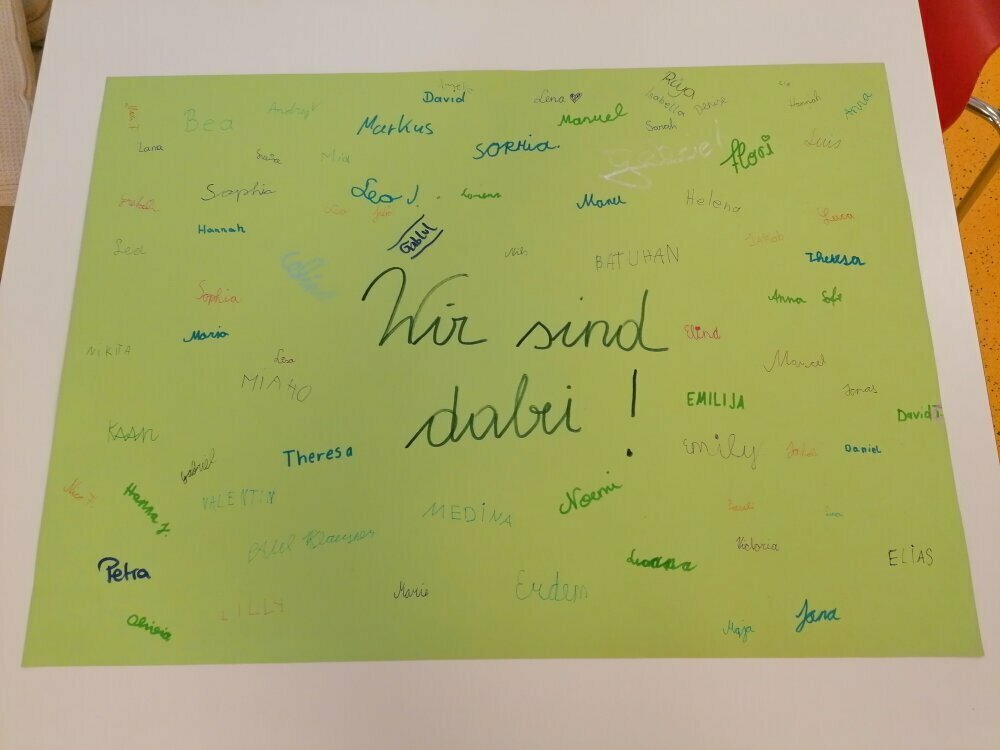 David
Lena
Raya
Isabella
Denise
Hannah
Anna
Bea
Markus
Manuel
Sarah
Lana
Mia
SOPHIA
Gabriel
flori
Luis
Sophia
Leo J.
Manu
Helena
Luca
Hannah
Lea
Nils
BATUHAN
Jakob
Theresa
Sophia
Anna Sofie
Wir sind
dabei!
Maria
Elina
NIKITA
Lisa
Marcel
MIA HO
Jonas
EMILIJA
David T.
KAAN
Theresa
Emily
Daniel
Gabriel
Nico F.
Hanna J.
VALENTIN
MEDINA
Noemi
Victoria
ELIAS
Petra
Leonora
Marie
Erdem
LILLY
Olivia
Maja
Jana